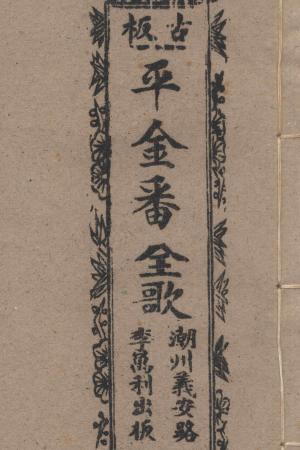 古板
平金番全歌
潮州義安路
李萬利出板